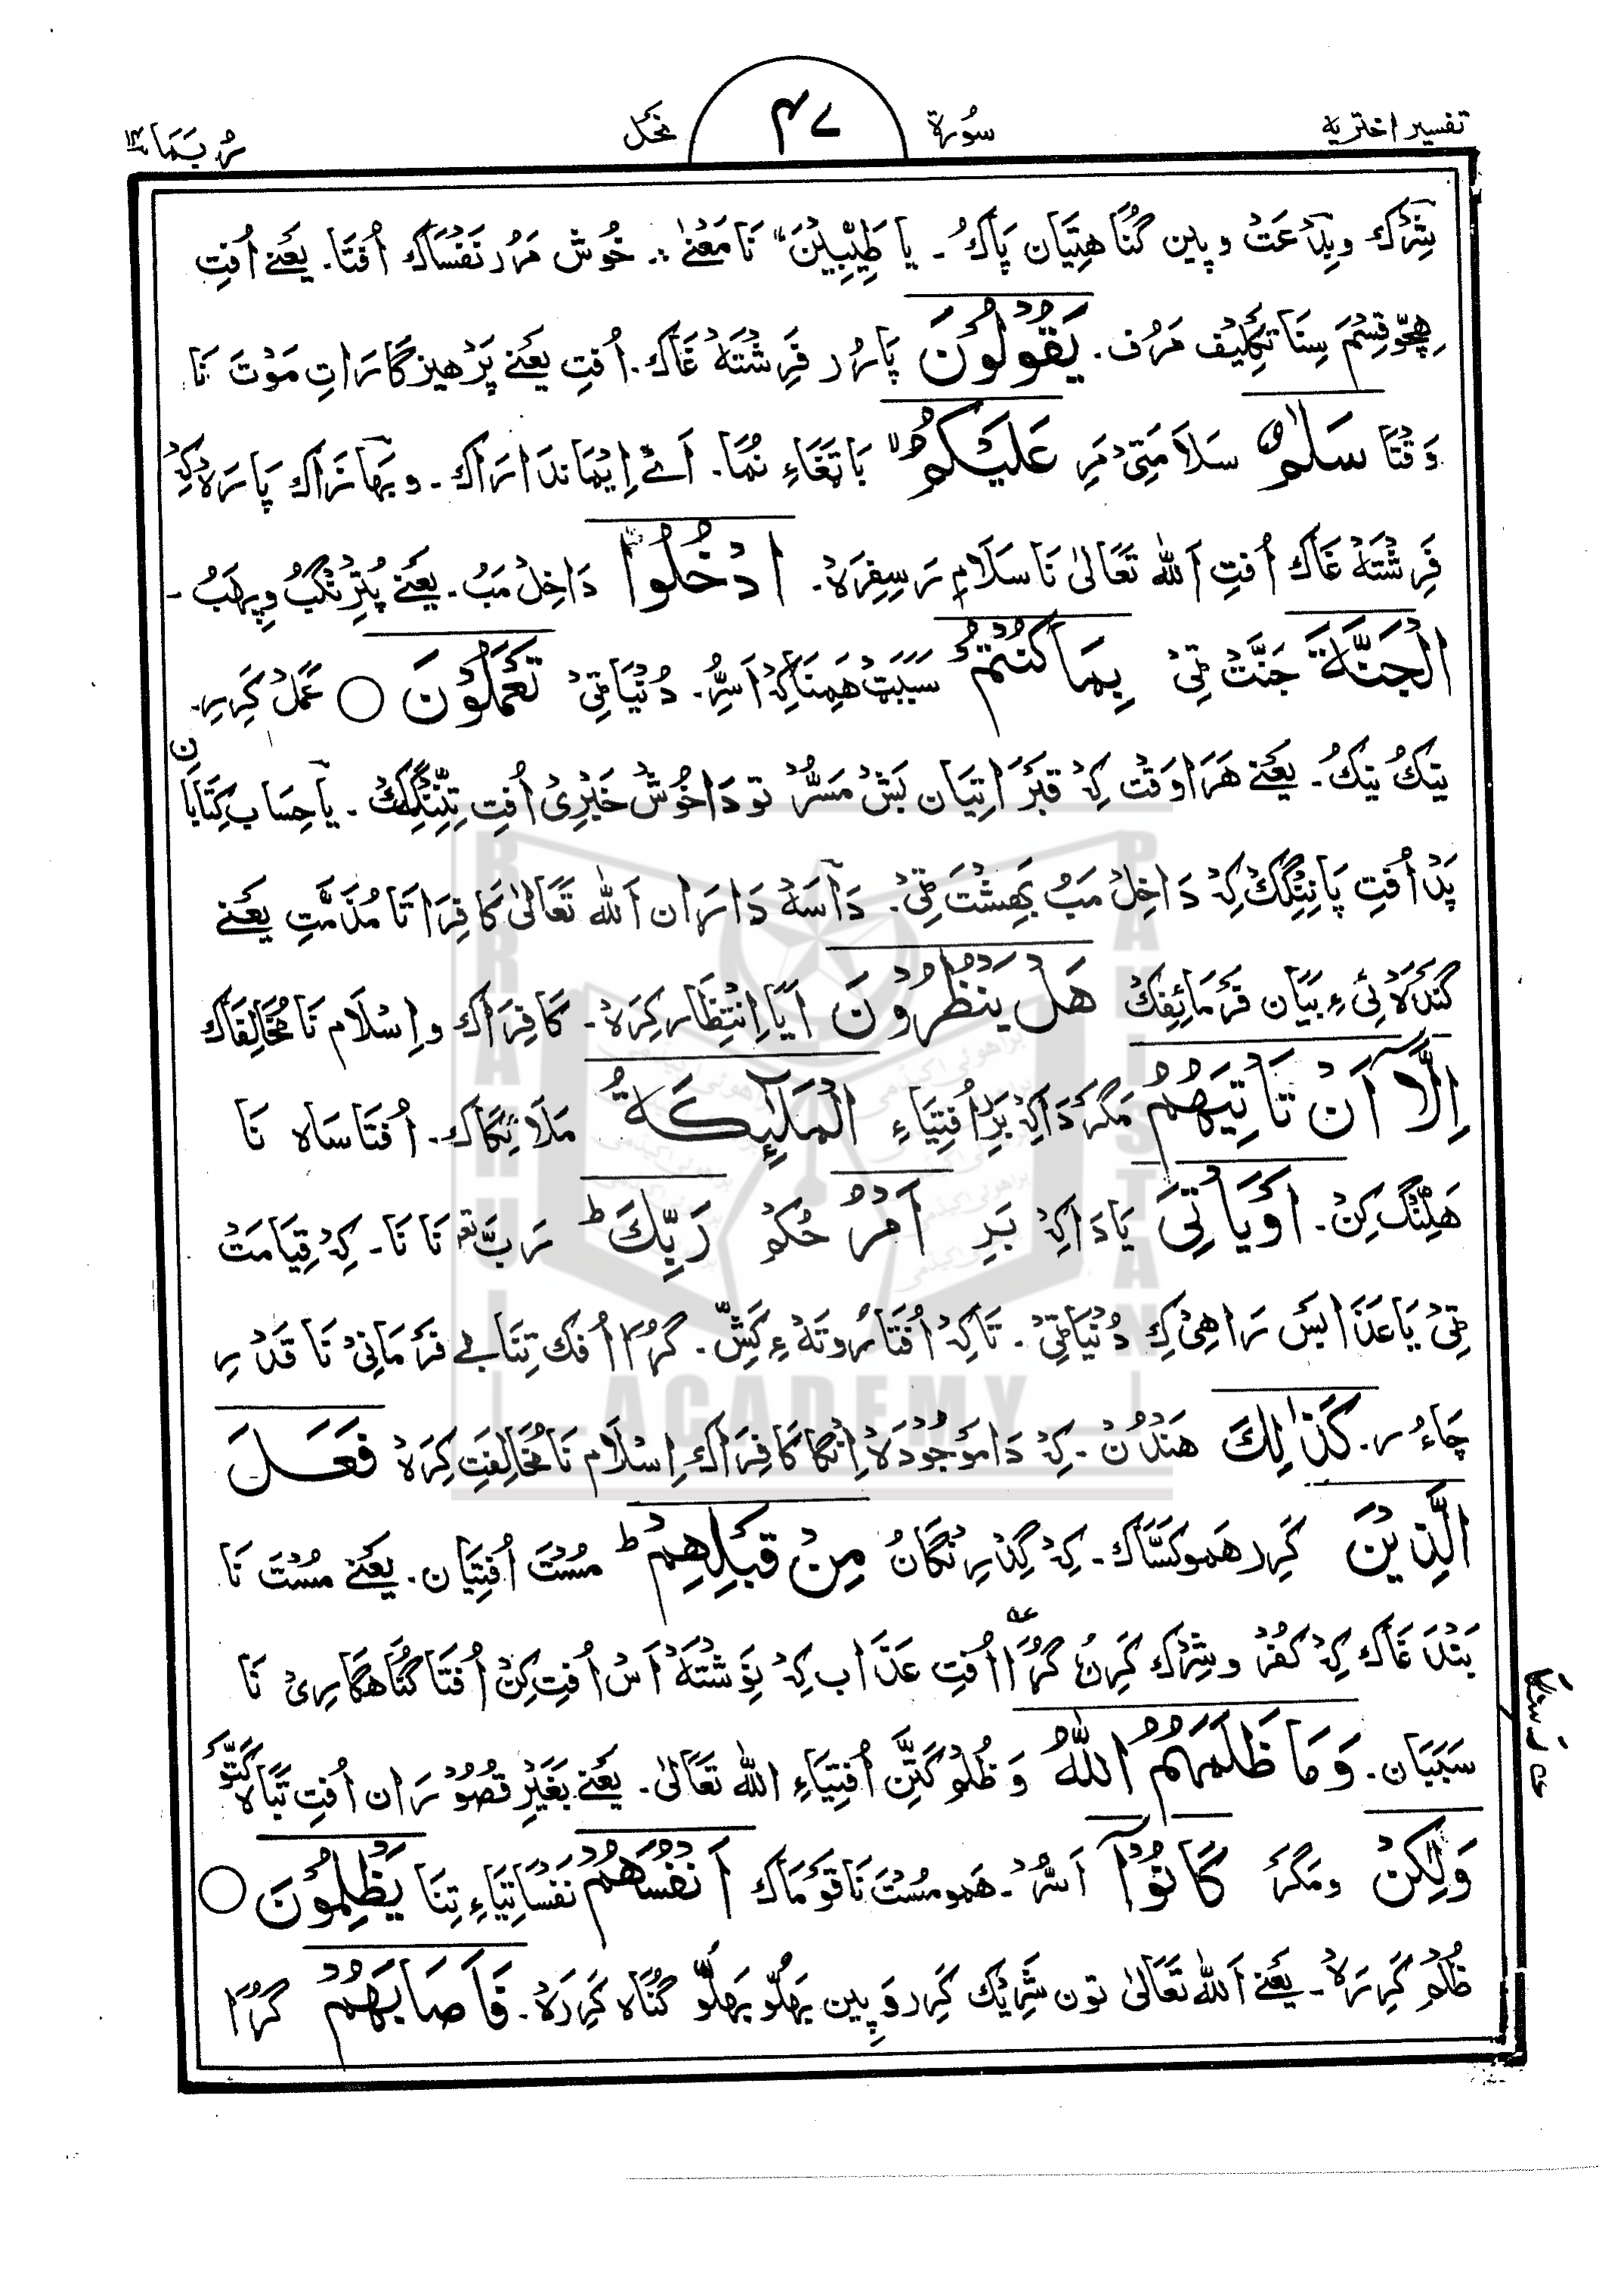 تفسیر اختریه
سُورة
۴۷
نحَل
رُبَمَا ۱۴
شِرْك وبِدْعَتْ و پِین گُنَاهتِیَان پَاكُ - یا طَیِّبِیْنَ نَا مَعْنٰی :. خُوش مَرُر نَفْسَاك اُفتَا. یَعْنے اُفتِ
هِچّو قِسْمَ سِنَا تکلِیْف مَرُف. یَقُوْلُوْنَ پَارُر فَرِشْتَهْ غَاك. اُفتِ یَعْنے پَرْهیزگَارَاتِ مَوْتَ نَا
وَقْتَا سَلٰمٌ سَلَامَتِیْ مَرِ عَلَیْكُمُ بَاتِغَاءِ نُمَا. اَےْ اِیْمَاندَارَاك - و بَهَازَاك پَارَهْ كِهْ
فَرِشْتَهْ غَاك اُفتِ اَللّٰه تَعَالٰی نَا سَلَامِ رَسِفِرَهْ. ادْخُلُوا دَاخِلْ مَبُ. یَعْنے پُتِرِنْگبُ و پِرهَبُ -
الْجَنَّةَ جَنَّتْ ٹِیْ بِمَا كُنْتُمْ سَبَبَتْ هَمِنَا كِهْ اَسُّرِ. دُنْیَا ٹِیْ تَعْمَلُوْنَ ○ عَمَلْ كَرِیرِ.
نیكُ نیكُ - یَعْنے هَرَا وَقْتْ كِهْ قَبْرَاتِیَان بَشْ مَسُّرْ تو دَا خُوشْ خَبْرِیْ اُفتِ تِنِنْگِكْ - یا حِسَاب كِتَابَان
پَدْ اُفتِ پَانِنْگِكْ كِهْ دَاخِلْ مَبُ بَهِشْتَ ٹِیْ. دَآسَهْ دَارَان اَللّٰه تَعَالٰی كَافِرَاتَا مُذَمَّتِ یَعْنے
گندَهْ ئِیءِ بَیَان فَرْمَائِفِكْ هَلْ یَنْظُرُوْنَ اَیَا اِنْتِظَار كِرَهْ - كَافِرَاك و اِسْلَام نَا مُخَالِفَاك
اِلَّاۤ اَنْ تَاْتِیَهُمُ مَگَرْ دَاكِهْ بَرِ اُفتِیَاءِ الْمَلٰٓئِكَةُ مَلَائِكَاك. اُفتَا سَاه نَا
هَلِنْگ كِنْ. اَوْ یَاْتِیَ یَا دَاكِهْ بَرِ اَمْرُ حُكمْ رَبِّكَ ؕ رَبَّ نَا نَا - كِهْ قِیَامَتْ
ٹِیْ یَا عَذَابَسْ رَاهِیْ كِ دُنْیَا ٹِیْ. تَاكِهْ اُفتَا رُوتَهْ ءِ كَشِّ. گُرَا اُفك تِنَا بے فَرْمَانِیْ نَا قَدْرِ
چَاءُر. كَذٰلِكَ هَنْدُنْ - كِهْ دَا مَوْجُوْدَهْ اِنْگا كَافِرَاك اِسْلَام نَا مُخَالِفَتِ كِرَهْ فَعَلَ
الَّذِیْنَ كَرِر هَمو كَسَّاك - كِهْ گِدْرِنْگانُ مِنْ قَبْلِهِمْ ؕ مُسْتَ اُفتِیَان. یَعْنے مُسْتَ نَا
بَنْدَغَاك كِهْ كفُرْ و شِرْك كَرِنُ گُرَا اُفتِ عَذَاب كِهْ نِوِشْتَهْ اَسْ اُفتِ كِنْ اُفتَا گُنَاهگارِیْ نَا
سَبَبَان. وَمَا ظَلَمَهُمُ اللّٰهُ وَ ظُلْمْ كَتَّنِ اُفتِیَاءِ اللّٰه تَعَالٰی. یَعْنے بَغَیْر قصُوْرَان اُفتِ تَبَاه كَتَّوْ
وَلٰكِنْ و مَگَرْ كَانُوْۤا اَسُّرْ - هَمو مُسْتَ نَا قَوْمَاك اَنْفُسَهُمْ نَفْسَاتِیَاءِ تِنَا یَظْلِمُوْنَ ○
ظُلمْ كَرِرَهْ - یَعْنے اَللّٰه تَعَالٰی تون شَرِیْك كَرِر وَ پِین بَهَلُّو بَهَلُّو گُنَاه كَرِرَهْ. فَاَصَابَهُمْ گُرَا